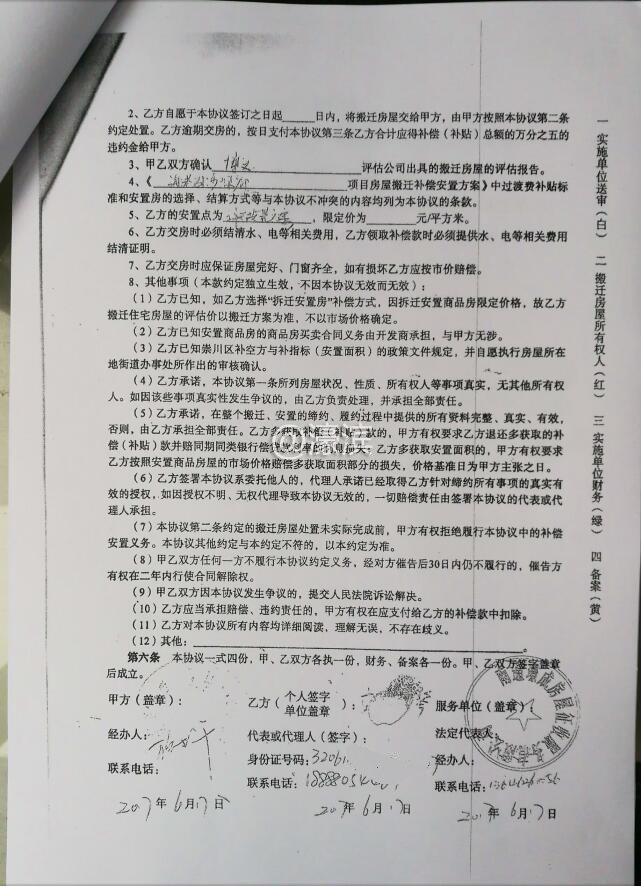 2、乙方自愿于本协议签订之日起______日内，将搬迁房屋交给甲方，由甲方按照本协议第二条
约定处置。乙方逾期交房的，按日支付本协议第三条乙方合计应得补偿（补贴）总额的万分之五的
违约金给甲方。
3、甲乙双方确认 评估公司出具的搬迁房屋的评估报告。
4、《 项目房屋搬迁补偿安置方案》中过渡费补贴标
准和安置房的选择、结算方式等与本协议不冲突的内容均列为本协议的条款。
5、乙方的安置点为 ，限定价为________元/平方米。
6、乙方交房时必须结清水、电等相关费用，乙方领取补偿款时必须提供水、电等相关费用
结清证明。
7、乙方交房时应保证房屋完好、门窗齐全，如有损坏乙方应按市价赔偿。
8、其他事项（本款约定独立生效，不因本协议无效而无效）：
（1）乙方已知，如乙方选择“拆迁安置房”补偿方式，因拆迁安置商品房限定价格，故乙方
搬迁住宅房屋的评估价以搬迁方案为准，不以市场价格确定。
（2）乙方已知安置商品房的商品房买卖合同义务由开发商承担，与甲方无涉。
（3）乙方已知崇川区补空方与补指标（安置面积）的政策文件规定，并自愿执行房屋所在
地街道办事处所作出的审核确认。
（4）乙方承诺，本协议第一条所列房屋状况、性质、所有权人等事项真实，无其他所有权
人。如因该些事项真实性发生争议的，由乙方负责处理，并承担全部责任。
（5）乙方承诺，在整个搬迁、安置的缔约、履约过程中提供的所有资料完整、真实、有效，
否则，由乙方承担全部责任。乙方多获取补偿（补贴）款的，甲方有权要求乙方退还多获取的补
偿（补贴）款并赔同期同类银行贷款利率的利息损失，乙方多获取安置面积的，甲方有权要求
乙方按照安置商品房屋的市场价格赔偿多获取面积部分的损失，价格基准日为甲方主张之日。
（6）乙方签署本协议系委托他人的，代理人承诺已经取得乙方针对缔约所有事项的真实有
效的授权，如因授权不明、无权代理导致本协议无效的，一切赔偿责任由签署本协议的代表或代
理人承担。
（7）本协议第二条约定的搬迁房屋处置未实际完成前，甲方有权拒绝履行本协议中的补偿
安置义务。本协议其他约定与本约定不符的，以本约定为准。
（8）甲乙双方任何一方不履行本协议约定义务，经对方催告后30日内仍不履行的，催告方
有权在二年内行使合同解除权。
（9）甲乙双方因本协议发生争议的，提交人民法院诉讼解决。
（10）乙方应当承担赔偿、违约责任的，甲方有权在应支付给乙方的补偿款中扣除。
（11）乙方对本协议所有内容均详细阅读，理解无误，不存在歧义。
（12）其他：
第六条 本协议一式四份，甲、乙双方各执一份，财务、备案各一份。甲、乙双方签字盖章
后成立。
甲方（盖章）： 乙方（个人签字 单位盖章）： 服务单位（盖章）
经办人： 代表或代理人（签字）： 法定代表人
联系电话： 身份证号码：32061 经办人：
联系电话： 联系电话：
2017年6月17日 2017年6月17日 2017年6月17日
一 实施单位送审（白） 二 搬迁房屋所有权人（红） 三 实施单位财务（绿） 四 备案（黄）
@濠滨